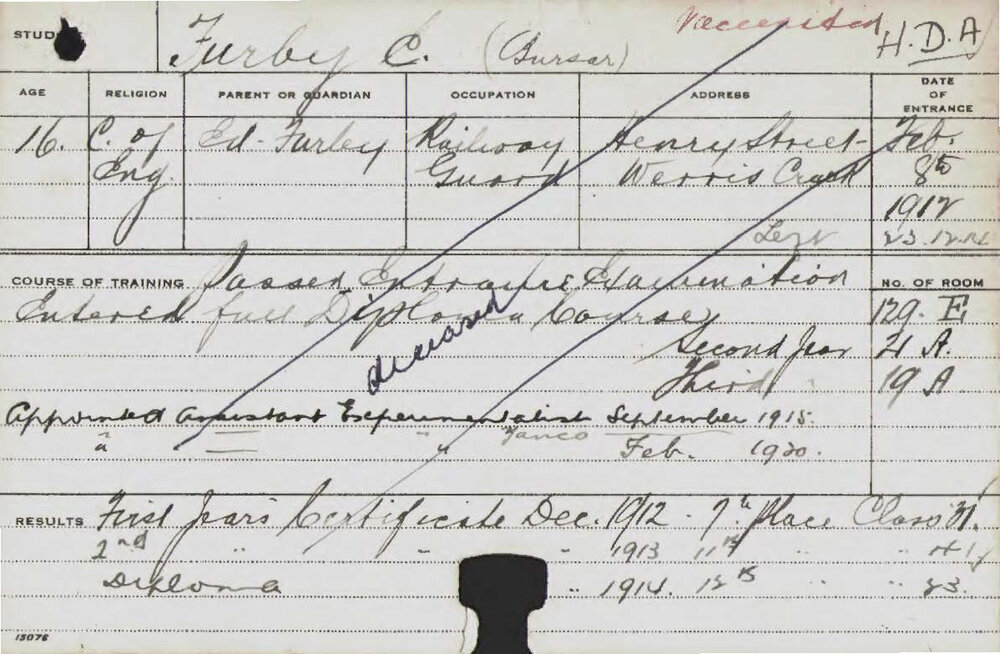 STUD
Furby C. (Bursar) Vaccinated H.D.A
AGE RELIGION PARENT OR GUARDIAN OCCUPATION ADDRESS DATE OF ENTRANCE
16. C. of Ed. Furby Railway Henry Street Feb.
Eng. Guard Werris Creek 8th
1912
23.12.14
COURSE OF TRAINING Passed Entrance Examination NO. OF ROOM
Entered full Diploma Course 129. E
Second Year 21 A.
Third " 19 A
deceased
Appointed Assistant Experimentalist September 1915.
" = " Yanco Feb. 1920.
RESULTS First Year's Certificate Dec. 1912 - 7th Place Class 31.
2nd " " - " 1913 11th " "
Diploma " 1914. 12th " " 23.
15076